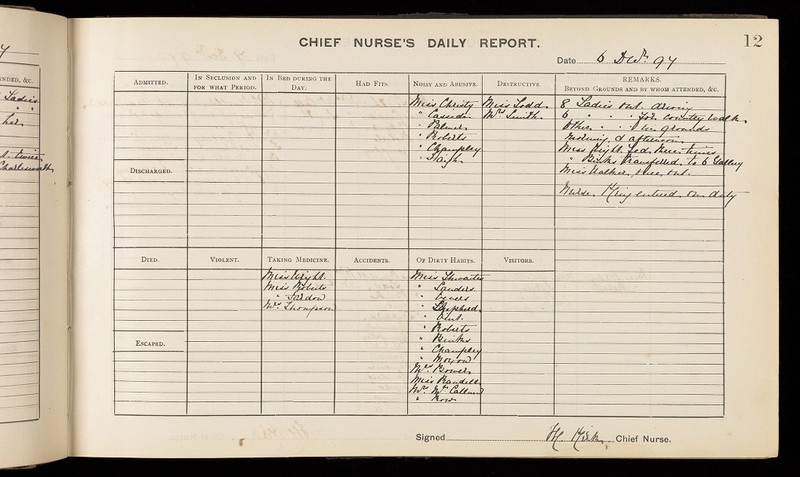 12
CHIEF NURSE'S DAILY REPORT.
Date 6 Decr. 94
ADMITTED.
IN SECLUSION AND
FOR WHAT PERIOD.
IN BED DURING THE
DAY.
HAD FITS.
NOISY AND ABUSIVE.
Miss Christy
" Cassidi
" Palmer
" Roberts
" Champley
" Haigh
DESTRUCTIVE.
Miss Todd
Mrs Smith
REMARKS.
BEYOND GROUNDS AND BY WHOM ATTENDED, &C.
8 Ladies out driving
6 " " for country walk
Others " " in grounds
morning & afternoon
Miss Wright fed three times
" Binks transferred to 6 Gallery
Miss Walker, out
Nurse King entered on duty
DISCHARGED.
DIED.
VIOLENT.
TAKING MEDICINE.
Miss Wright
Miss Roberts
"
Mrs Thompson
ACCIDENTS.
OF DIRTY HABITS.
Miss Thwaites
" Sanders
"
" Shepherd
"
" Roberts
" Binks
" Champley
" Moxon
Mrs Bowes
Miss Randell
Mrs McCallum
" Row
VISITORS.
ESCAPED.
Signed H. Kirk Chief Nurse.
NDED, &C.
Ladies
twice
Charlesworth